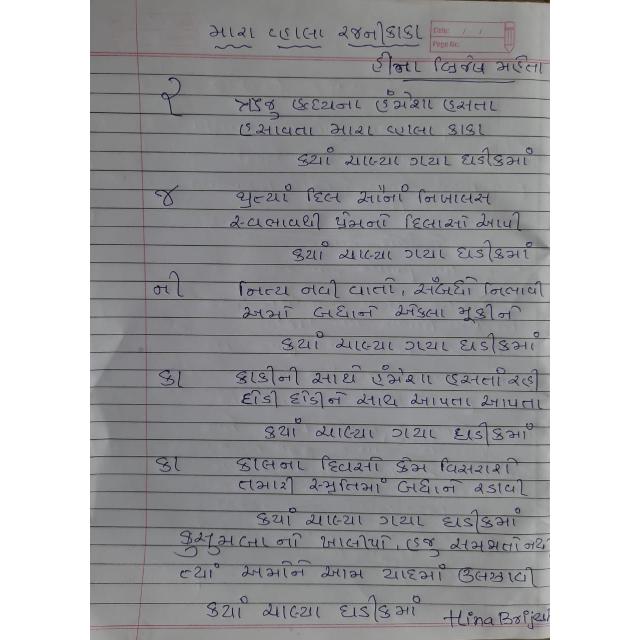 મારા વ્હાલા રજનીકાકા
Date: / /
Page No.
હીના બ્રિજેષ મહેતા
ર ઋજુ હૃદયના હંમેશા હસતા
હસાવતા મારા વ્હાલા કાકા
કયાં ચાલ્યા ગયા ઘડીકમાં
જ જીત્યાં દિલ સૌનાં નિખાલસ
સ્વભાવથી પ્રેમનો દિલાસો આપી
કયાં ચાલ્યા ગયા ઘડીકમાં
ની નિત્ય નવી વાતો, સંબંધો નિભાવી
અમો બધાને એકલા મૂકીને
કયાં ચાલ્યા ગયા ઘડીકમાં
કા કાકીની સાથે હંમેશા હસતાં રહી
દોડી દોડીને સાથ આપતા આપતા
કયાં ચાલ્યા ગયા ઘડીકમાં
કા કાલના દિવસો કેમ વિસરાશે
તમારી સ્મૃતિમાં બધાને રડાવી
કયાં ચાલ્યા ગયા ઘડીકમાં
કુસુમબાનો ખાલીપો, હજુ સમમતો નથી
ત્યાં અમોને આમ યાદમાં ઉલઝાવી
કયાં ચાલ્યા ઘડીકમાં
Hina Brijesh